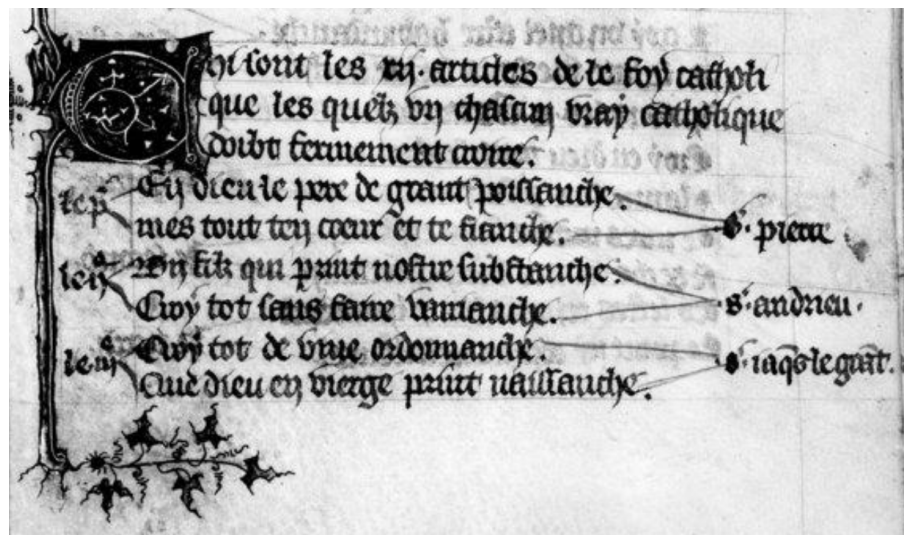 Chi sont les xij. articles de le foy catholi
que les quelz vn chascun vray catholique
doibt fermement croire.
le p̄ En dieu le pere de grant poissanche.
mes tout ten coeur et te fianche. S. pierre
le ij En filz qui print nostre substanche.
Croy tot sans faire variianche. s. andrieu.
le iij Croy tot de vraie ordonnanche. s. iaq̄s le grāt.
Que dieu en vierge print naissanche.